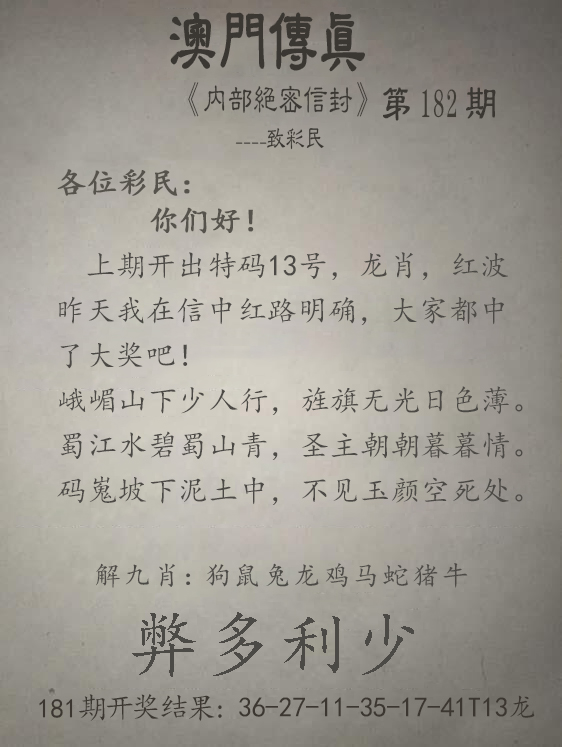 澳門傳眞
《内部絕密信封》第182期
----致彩民
各位彩民：
你们好！
上期开出特码13号，龙肖，红波
昨天我在信中红路明确，大家都中
了大奖吧！
峨嵋山下少人行，旌旗无光日色薄。
蜀江水碧蜀山青，圣主朝朝暮暮情。
码嵬坡下泥土中，不见玉颜空死处。
解九肖：狗鼠兔龙鸡马蛇猪牛
弊多利少
181期开奖结果：36-27-11-35-17-41T13龙